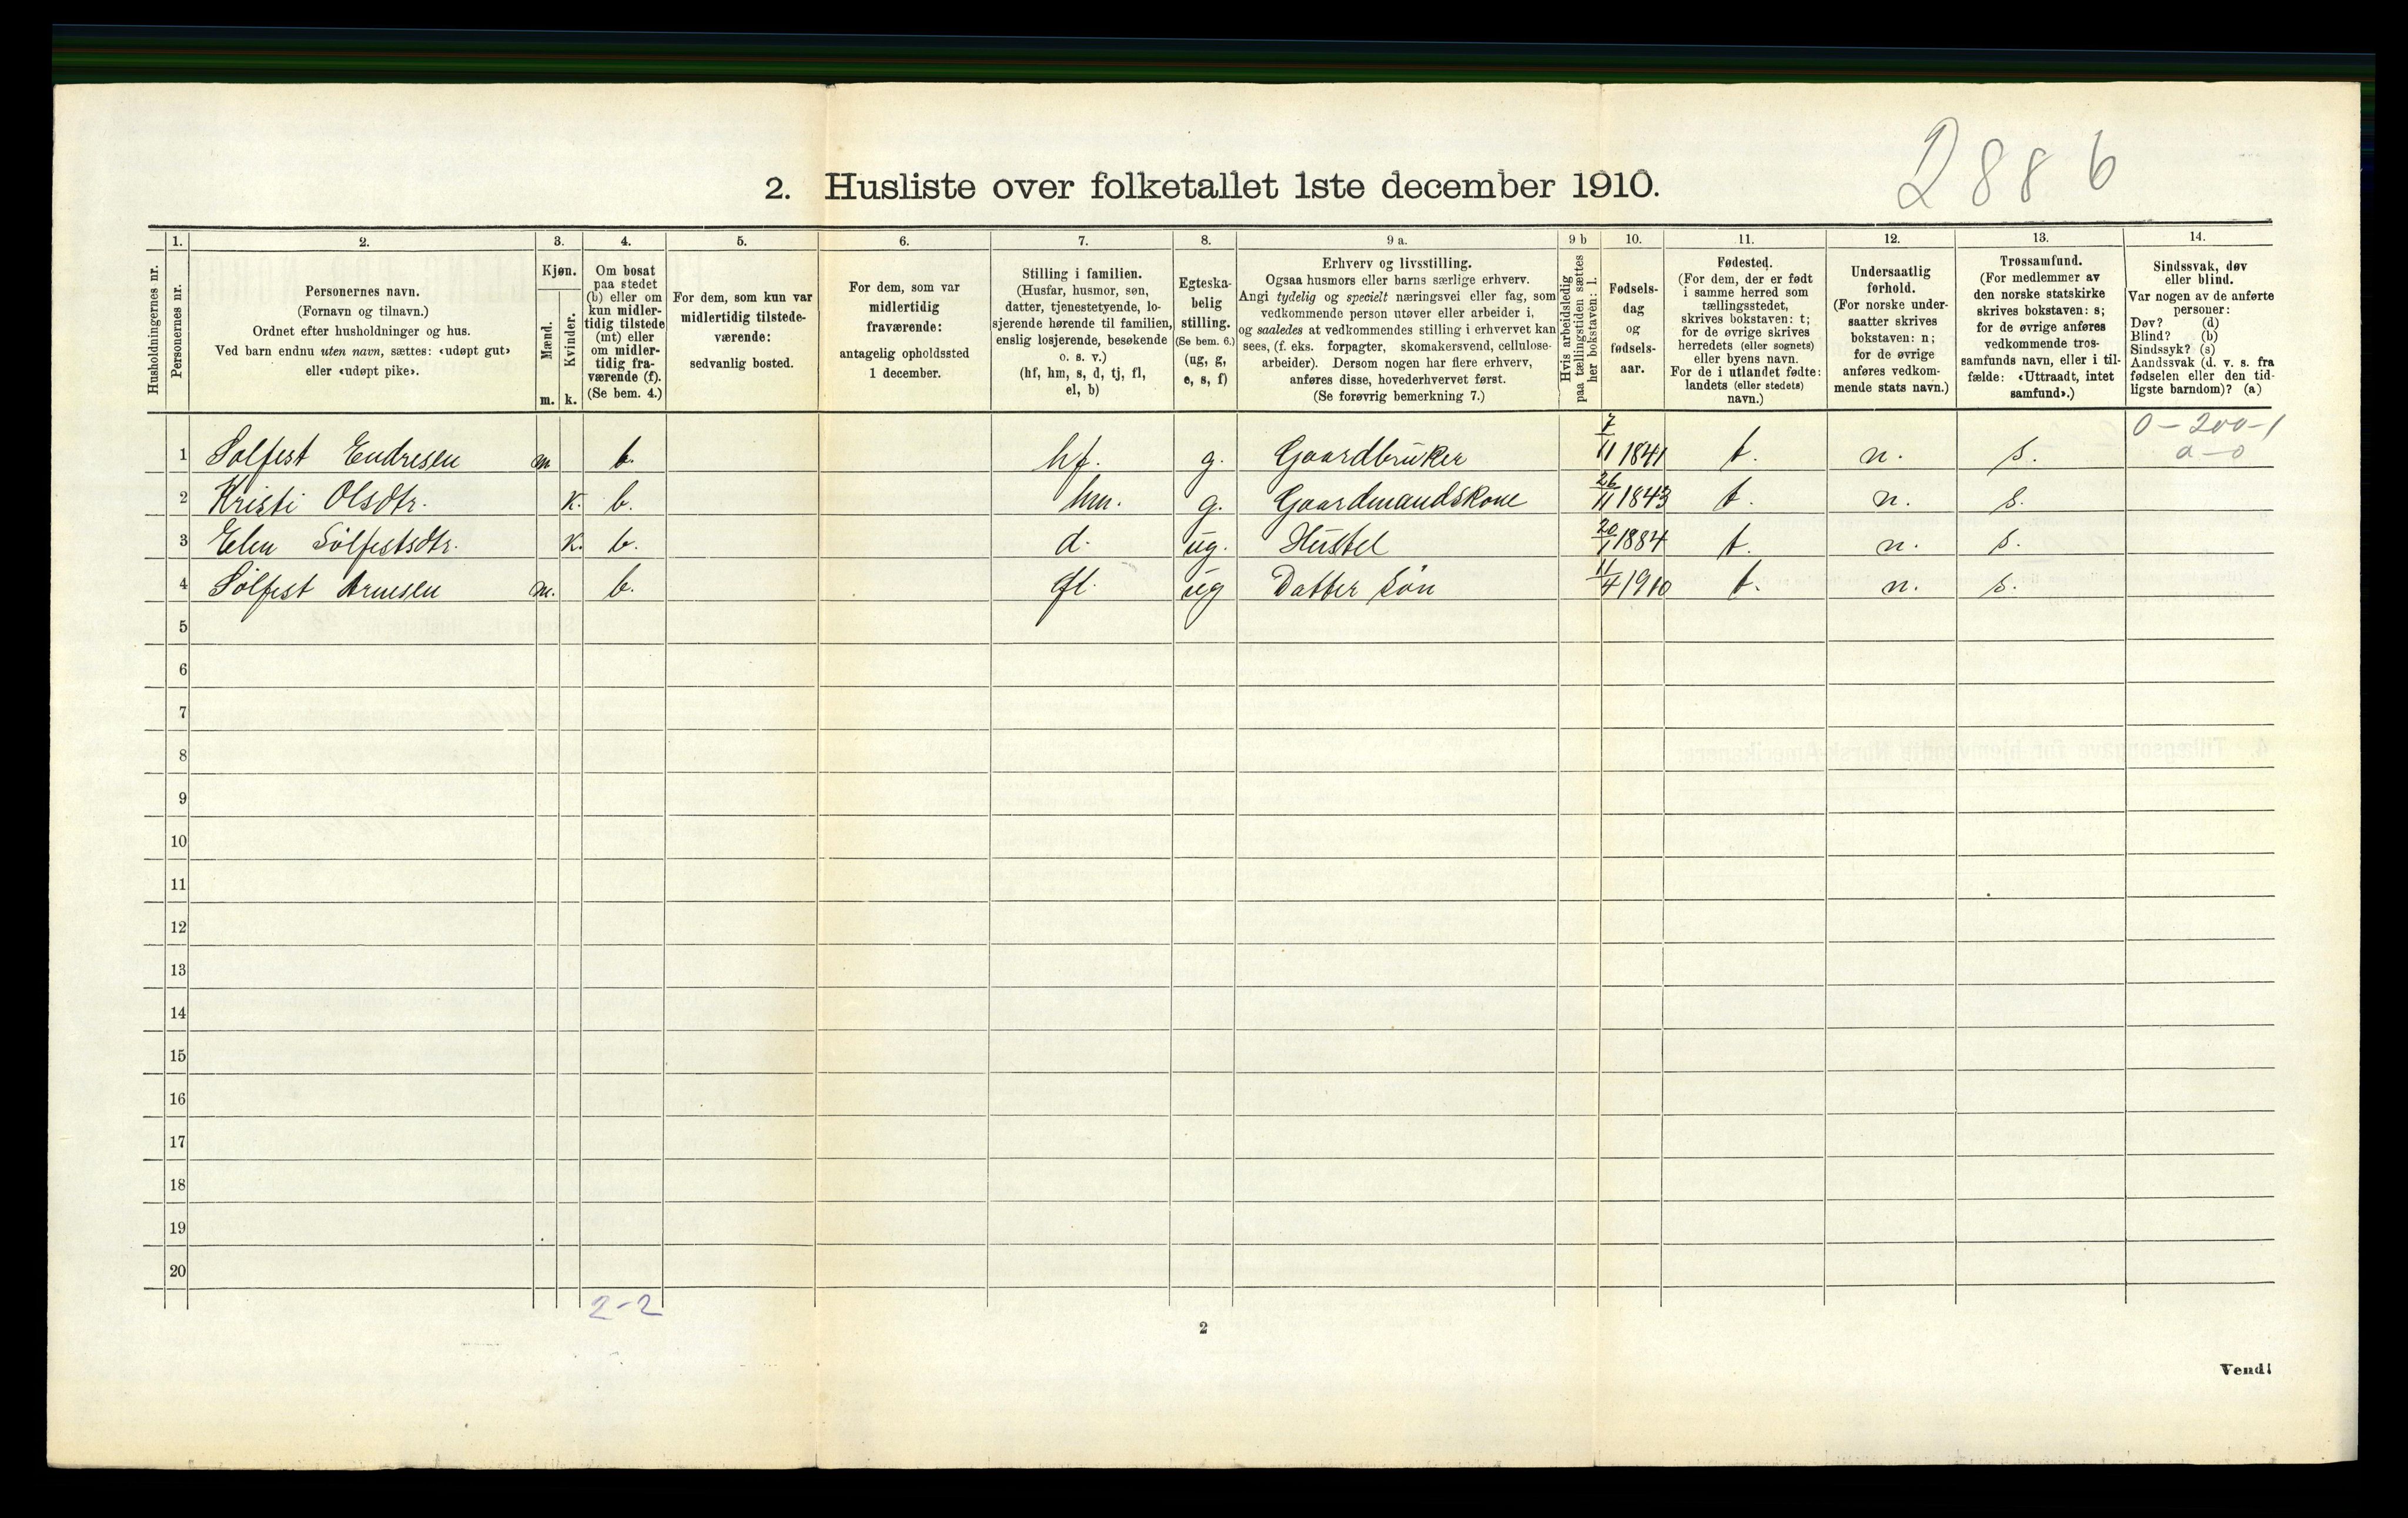 2886
2. Husliste over folketallet 1ste december 1910.
Husholdningernes nr.
1.
Personernes nr.
2.
Personernes navn.
(Fornavn og tilnavn.)
Ordnet efter husholdninger og hus.
Ved barn endnu uten navn, sættes: «udøpt gut»
eller «udøpt pike».
3.
Kjøn.
Mænd.
Kvinder.
m. k.
4.
Om bosat
paa stedet
(b) eller om
kun midler-
tidig tilstede
(mt) eller
om midler-
tidig fra-
værende (f).
(Se bem. 4.)
5.
For dem, som kun var
midlertidig tilstede-
værende:
sedvanlig bosted.
6.
For dem, som var
midlertidig
fraværende:
antagelig opholdssted
1 december.
7.
Stilling i familien.
(Husfar, husmor, søn,
datter, tjenestetyende, lo-
sjerende hørende til familien,
enslig losjerende, besøkende
o. s. v.)
(hf, hm, s, d, tj, fl,
el, b)
8.
Egteska-
belig
stilling.
(Se bem. 6.)
(ug, g,
e, s, f)
9 a.
Erhverv og livsstilling.
Ogsaa husmors eller barns særlige erhverv.
Angi tydelig og specielt næringsvei eller fag, som
vedkommende person utøver eller arbeider i,
og saaledes at vedkommendes stilling i erhvervet kan
sees, (f. eks. forpagter, skomakersvend, cellulose-
arbeider). Dersom nogen har flere erhverv,
anføres disse, hovederhvervet først.
(Se forøvrig bemerkning 7.)
9 b
Hvis arbeidsledig
paa tællingstiden sættes
her bokstaven: l.
10.
Fødsels-
dag
og
fødsels-
aar.
11.
Fødested.
(For dem, der er født
i samme herred som
tællingsstedet,
skrives bokstaven: t;
for de øvrige skrives
herredets (eller sognets)
eller byens navn.
For de i utlandet fødte:
landets (eller stedets)
navn.)
12.
Undersaatlig
forhold.
(For norske under-
saatter skrives
bokstaven: n;
for de øvrige
anføres vedkom-
mende stats navn.)
13.
Trossamfund.
(For medlemmer av
den norske statskirke
skrives bokstaven: s;
for de øvrige anføres
vedkommende tros-
samfunds navn, eller i til-
fælde: «Uttraadt, intet
samfund».)
14.
Sindssvak, døv
eller blind.
Var nogen av de anførte
personer:
Døv? (d)
Blind? (b)
Sindssyk? (s)
Aandssvak (d. v. s. fra
fødselen eller den tid-
ligste barndom)? (a)
0-200-1
a-0
1 Solfest Endresen m b. hf. g. Gaardbruker 7/11 1841 t. n. s.
2 Kristi Olsdtr. k. b. hm. g. Gaardmandskone 26/11 1843 t. n. s.
3 Elen Solfestsdtr. k. b. d. ug. Hustel 20/1 1884 t. n. s.
4 Solfest Arnesen m. b. fl. ug Datter søn 11/4 1910 t. n. s.
5
6
7
8
9
10
11
12
13
14
15
16
17
18
19
20
2-2
2
Vend!